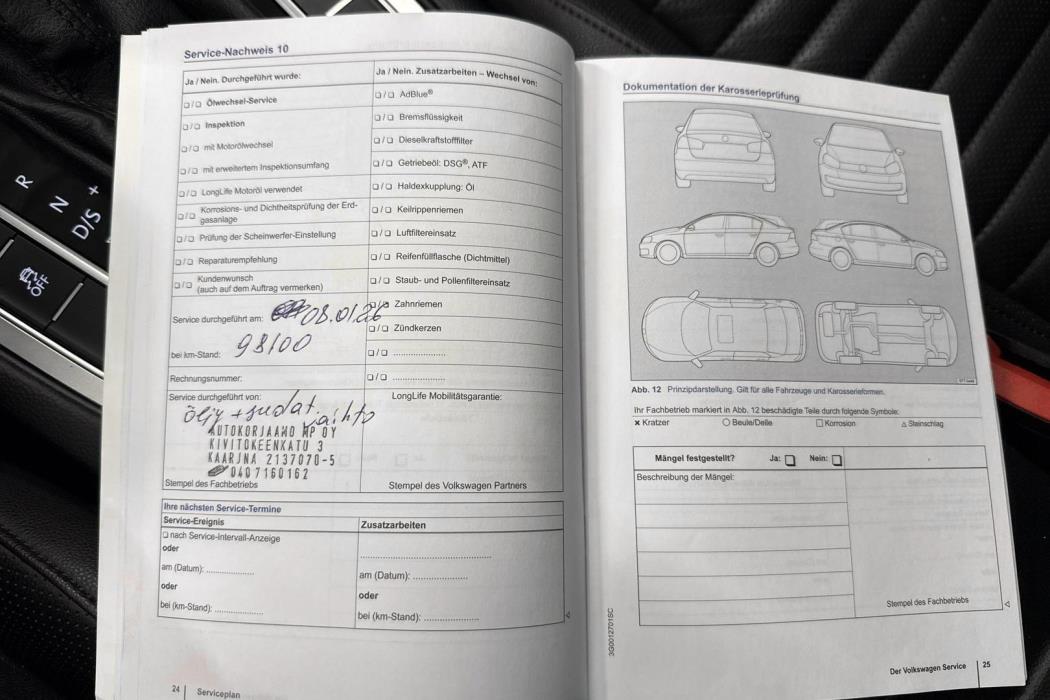 R
N
D/S
+
OFF
Service-Nachweis 10
Ja / Nein. Durchgeführt wurde:
Ja / Nein. Zusatzarbeiten – Wechsel von:
❑/❑ Ölwechsel-Service
❑/❑ Inspektion
❑/❑ mit Motorölwechsel
❑/❑ mit erweitertem Inspektionsumfang
❑/❑ LongLife Motoröl verwendet
❑/❑ Korrosions- und Dichtheitsprüfung der Erd-
gasanlage
❑/❑ Prüfung der Scheinwerfer-Einstellung
❑/❑ Reparaturempfehlung
❑/❑ Kundenwunsch
(auch auf dem Auftrag vermerken)
❑/❑ AdBlue®
❑/❑ Bremsflüssigkeit
❑/❑ Dieselkraftstofffilter
❑/❑ Getriebeöl: DSG®, ATF
❑/❑ Haldexkupplung: Öl
❑/❑ Keilrippenriemen
❑/❑ Luftfiltereinsatz
❑/❑ Reifenfüllflasche (Dichtmittel)
❑/❑ Staub- und Pollenfiltereinsatz
❑/❑ Zahnriemen
❑/❑ Zündkerzen
❑/❑ ......................
❑/❑ ......................
Service durchgeführt am: 08.01.26
bei km-Stand: 98100
Rechnungsnummer:
Service durchgeführt von:
öljy + suodat. vaihto
AUTOKORJAAMO MP OY
KIVITOKEENKATU 3
KAARINA 2137070-5
0407160162
Stempel des Fachbetriebs
LongLife Mobilitätsgarantie:
Stempel des Volkswagen Partners
Ihre nächsten Service-Termine
Service-Ereignis
❑ nach Service-Intervall-Anzeige
oder
am (Datum): ....................
oder
bei (km-Stand): ....................
Zusatzarbeiten
......................................................
am (Datum): ......................
oder
bei (km-Stand): ......................
24 Serviceplan
Dokumentation der Karosserieprüfung
Abb. 12 Prinzipdarstellung. Gilt für alle Fahrzeuge und Karosserieformen.
Ihr Fachbetrieb markiert in Abb. 12 beschädigte Teile durch folgende Symbole:
× Kratzer ○ Beule/Delle □ Korrosion △ Steinschlag
Mängel festgestellt? Ja: ❑ Nein: ❑
Beschreibung der Mängel:
Stempel des Fachbetriebs
3G0012701SC
Der Volkswagen Service 25